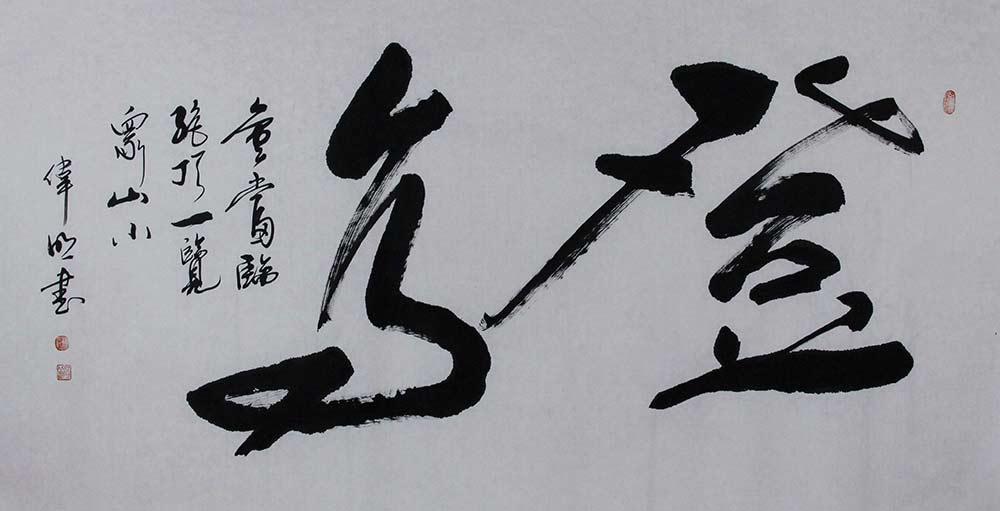 登高
會當臨
絕頂一覽
眾山小
偉明書